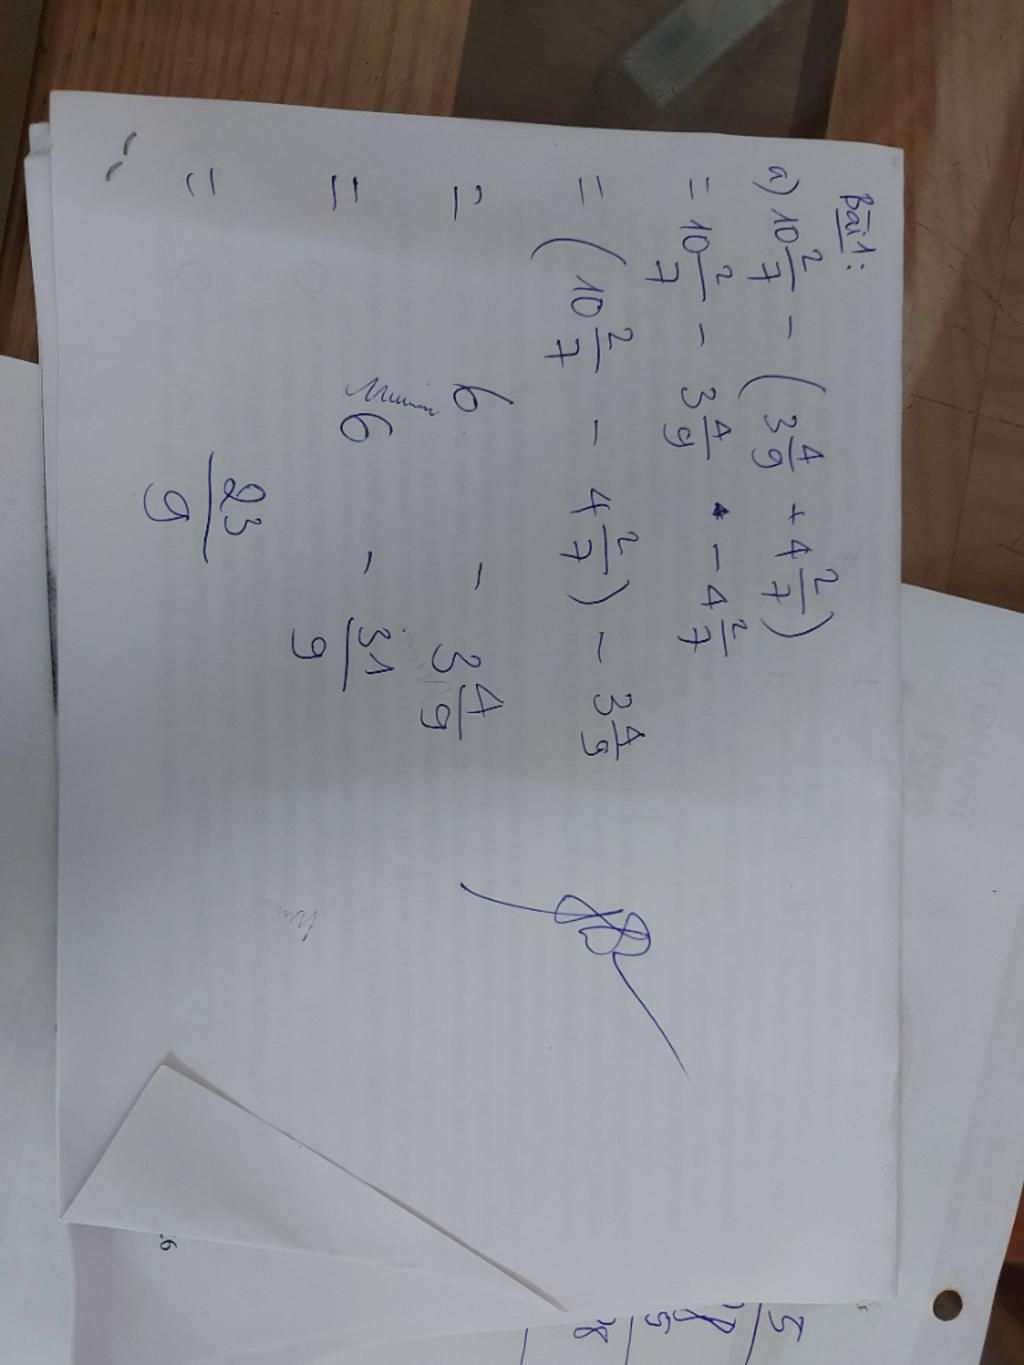 Bài 1:
a) 10 2/7 - (3 4/9 + 4 2/7)
= 10 2/7 - 3 4/9 - 4 2/7
= (10 2/7 - 4 2/7) - 3 4/9
= 6 - 3 4/9
= 6 - 31/9
= 23/9
THÁNG TƯ
2021